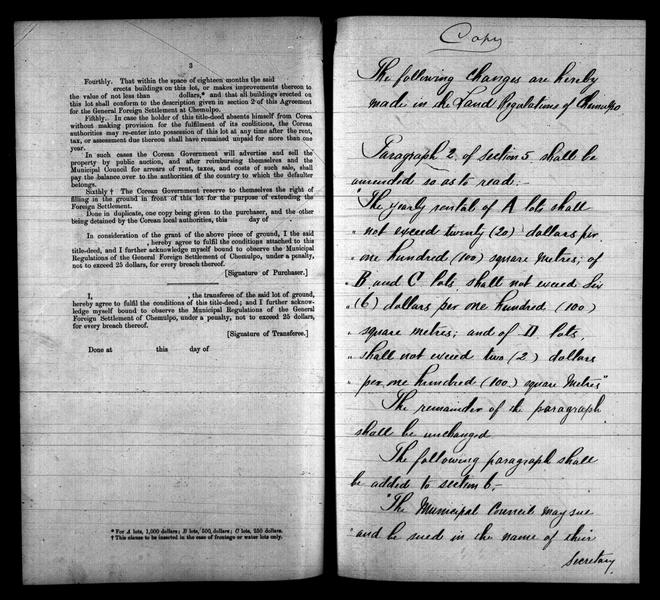 3
Fourthly. That within the space of eighteen months the said
erects buildings on this lot, or makes improvements thereon to
the value of not less than dollars,* and that all buildings erected on
this lot shall conform to the description given in section 2 of this Agreement
for the General Foreign Settlement at Chemulpo.
Fifthly. In case the holder of this title-deed absents himself from Corea
without making provision for the fulfilment of its conditions, the Corean
authorities may re-enter into possession of this lot at any time after the rent,
tax, or assessment due thereon shall have remained unpaid for more than one
year.
In such cases the Corean Government will advertise and sell the
property by public auction, and after reimbursing themselves and the
Municipal Council for arrears of rent, taxes, and costs of such sale, shall
pay the balance over to the authorities of the country to which the defaulter
belongs.
Sixthly † The Corean Government reserve to themselves the right of
filling in the ground in front of this lot for the purpose of extending the
Foreign Settlement.
Done in duplicate, one copy being given to the purchaser, and the other
being detained by the Corean local authorities, this day of .
In consideration of the grant of the above piece of ground, I the said
, hereby agree to fulfil the conditions attached to this
title-deed, and I further acknowledge myself bound to observe the Municipal
Regulations of the General Foreign Settlement of Chemulpo, under a penalty,
not to exceed 25 dollars, for every breach thereof.
[Signature of Purchaser.]
I, , the transferee of the said lot of ground,
hereby agree to fulfil the conditions of this title-deed; and I further acknow-
ledge myself bound to observe the Municipal Regulations of the General
Foreign Settlement of Chemulpo, under a penalty, not to exceed 25 dollars,
for every breach thereof.
[Signature of Transferee.]
Done at this day of
* For A lots, 1,000 dollars; B lots, 500 dollars; C lots, 250 dollars.
† This clause to be inserted in the case of frontage or water lots only.
Copy
The following Changes are hereby
made in the Land Regulations of Chemulpo
Paragraph 2 of section 5 shall be
amended so as to read:-
"The yearly rental of A lots shall
" not exceed twenty (20) dollars per
" one hundred (100) square metres; of
" B and C lots, shall not exceed Six
" (6) dollars per one hundred (100)
" square metres; and of D lots,
" shall not exceed two (2) dollars
" per one hundred (100) square metres"
The remainder of the paragraph
shall be unchanged
The following paragraph shall
be added to section 6,-
"The Municipal Council may sue
" and be sued in the name of their
secretary